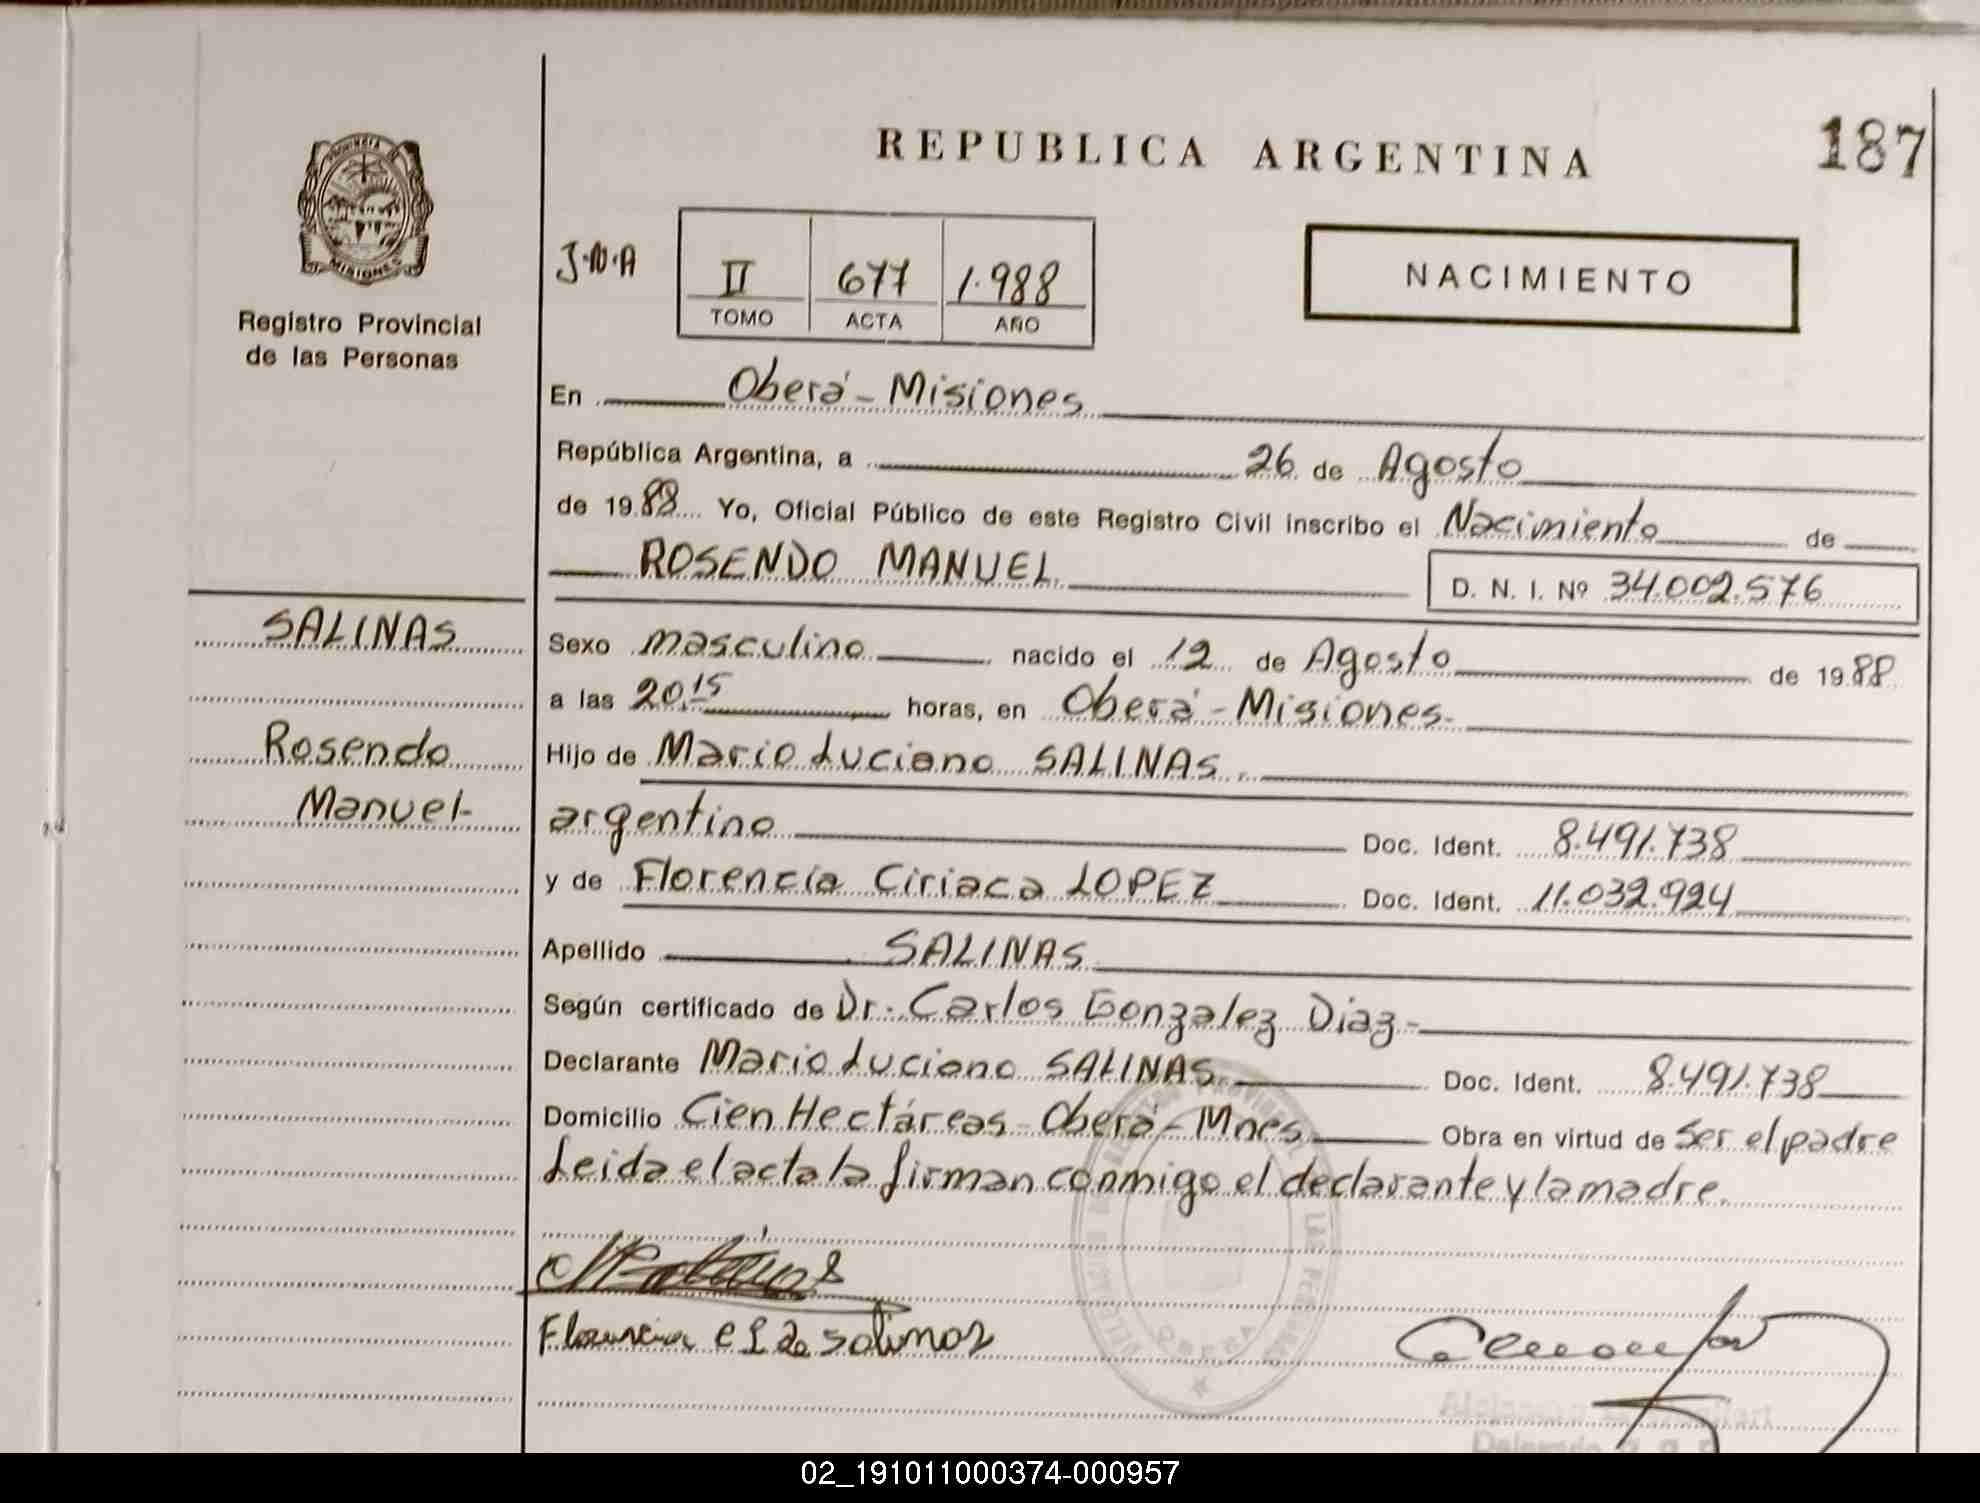 REPUBLICA ARGENTINA
187
PROVINCIA
MISIONES
Registro Provincial
de las Personas
J.N.A
II 677 1.988
TOMO ACTA AÑO
NACIMIENTO
En Oberá - Misiones
República Argentina, a 26 de Agosto
de 1988 Yo, Oficial Público de este Registro Civil inscribo el Nacimiento de
ROSENDO MANUEL
D. N. I. Nº 34.002.576
SALINAS
Rosendo
Manuel-
Sexo masculino nacido el 12 de Agosto de 1988
a las 20,15 horas, en Oberá - Misiones.
Hijo de Mario Luciano SALINAS.
argentino Doc. Ident. 8.491.738
y de Florencia Ciriaca LOPEZ Doc. Ident. 11.032.924
Apellido SALINAS
Según certificado de Dr. Carlos Gonzalez Diaz-
Declarante Mario Luciano SALINAS Doc. Ident. 8.491.738
Domicilio Cien Hectáreas - Oberá - Mnes Obra en virtud de Ser el padre
Leida el acta la firman conmigo el declarante y la madre.
Florencia de Salinas
OBERA
02_191011000374-000957